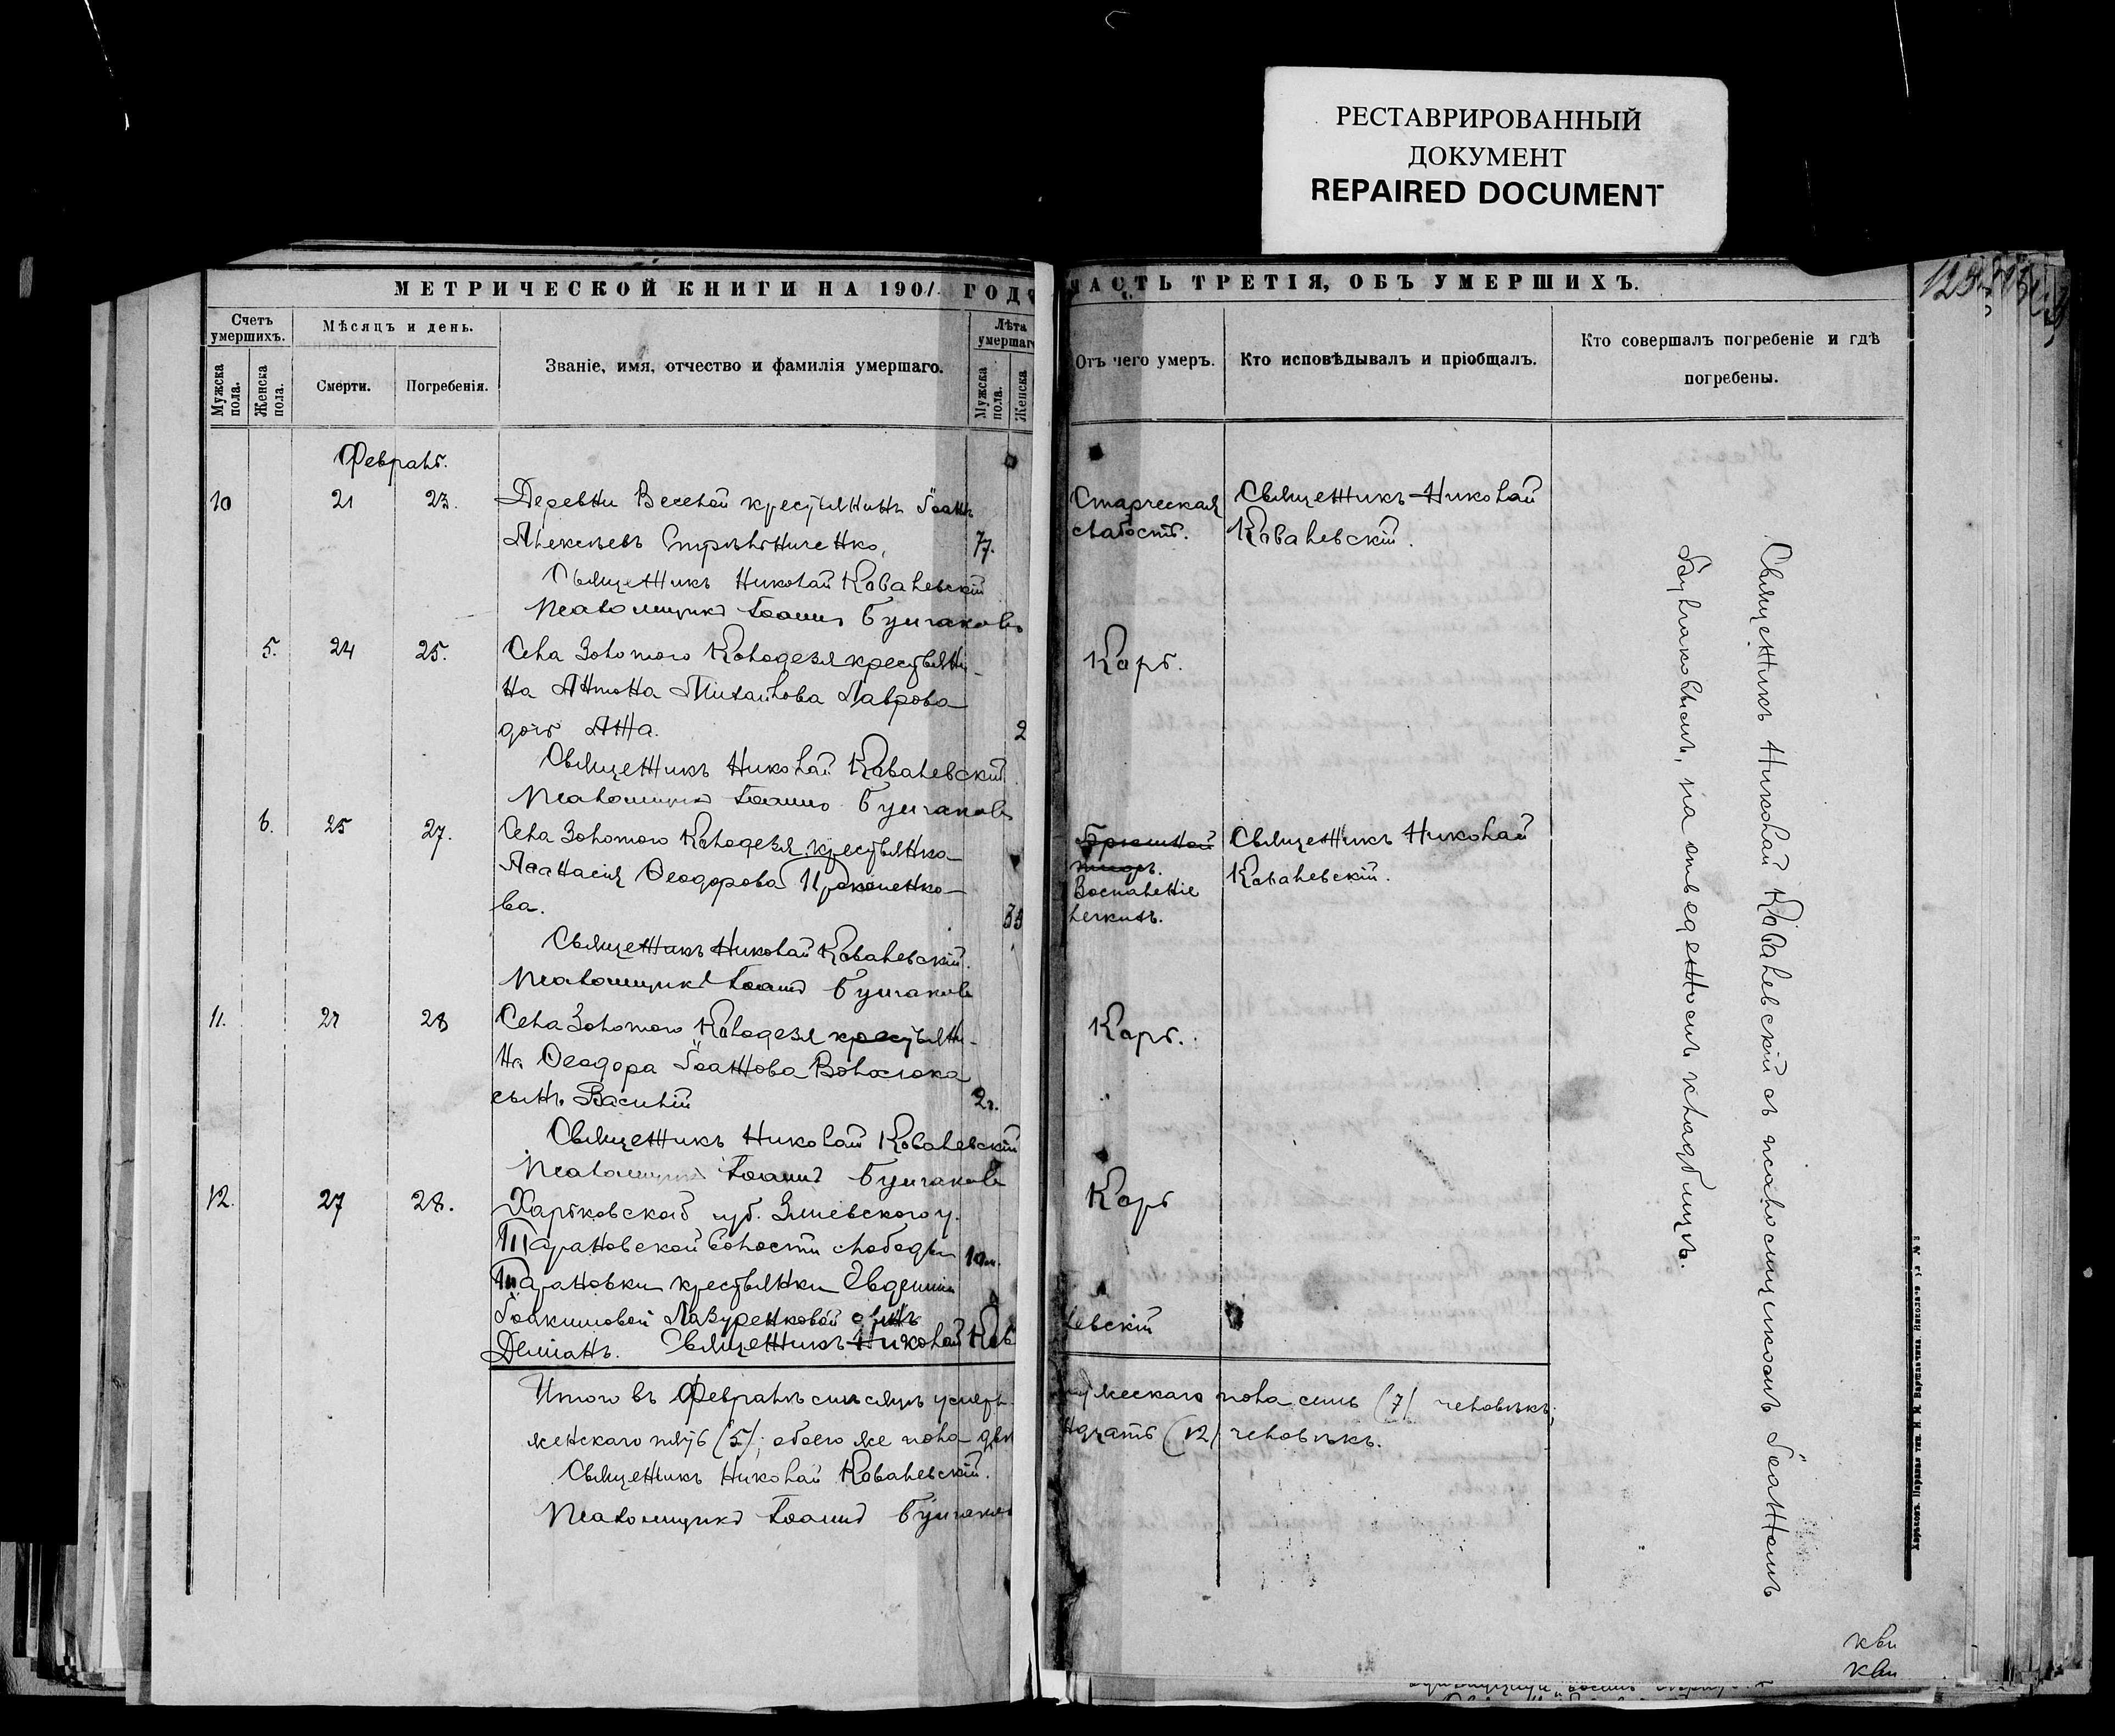 РЕСТАВРИРОВАННЫЙ
ДОКУМЕНТ
REPAIRED DOCUMENT
МЕТРИЧЕСКОЙ КНИГИ НА 1901 ГОД
ЧАСТЬ ТРЕТІЯ, ОБЪ УМЕРШИХЪ.
Счетъ умершихъ.
Мужска пола.
Женска пола.
Мѣсяцъ и день.
Смерти.
Погребенія.
Званіе, имя, отчество и фамилія умершаго.
Лѣта умершаго
Мужска пола.
Женска
Отъ чего умеръ.
Кто исповѣдывалъ и пріобщалъ.
Кто совершалъ погребеніе и гдѣ
погребены.
Февраль.
10 21 23. Деревни Веселой крестьянинъ Іоаннъ
Алексѣевъ Стрѣльниченко, 77.
Старческая
слабость.
Священникъ Николай
Ковалевскій.
Священникъ Николай Ковалевскій
Псаломщикъ Іоаннъ Булгаковъ
5. 24 25. Села Золотого Колодезя крестьяни-
на Антона Михайлова Лаврова
дочь Анна. 2
Корь.
Священникъ Николай Ковалевскій
Псаломщикъ Іоаннъ Булгаковъ
6. 25 27. Села Золотого Колодезя крестьянка
Афанасія Ѳеодорова Прокопенко-
ва.
Брюшной
тифъ.
Воспаленіе
легкихъ.
Священникъ Николай
Ковалевскій.
Священникъ Николай Ковалевскій.
Псаломщикъ Іоаннъ Булгаковъ
11. 27 28 Села Золотого Колодезя крестьяни-
на Ѳеодора Іоаннова Волосюка
сынъ Василій 2г.
Корь.
Священникъ Николай Ковалевскій
Псаломщикъ Іоаннъ Булгаковъ
12. 27 28. Харьковской губ. Зміевского у.
Тарановской волости слободы 10м.
Тарановки крестьянки Евдокіи
Іоакимовой Лазуренковой сынъ
Даміанъ. Священникъ Николай Ковалевскій
Корь
Итого въ Февралѣ мѣсяцѣ умерло мужескаго пола семь (7) человѣкъ;
женскаго пять (5); обоего же пола двѣнадцать (12) человѣкъ.
Священникъ Николай Ковалевскій.
Псаломщикъ Іоаннъ Булгаковъ
Священникъ Николай Ковалевскій съ псаломщикомъ Іоанномъ
Булгаковымъ, на отведенномъ кладбищѣ.